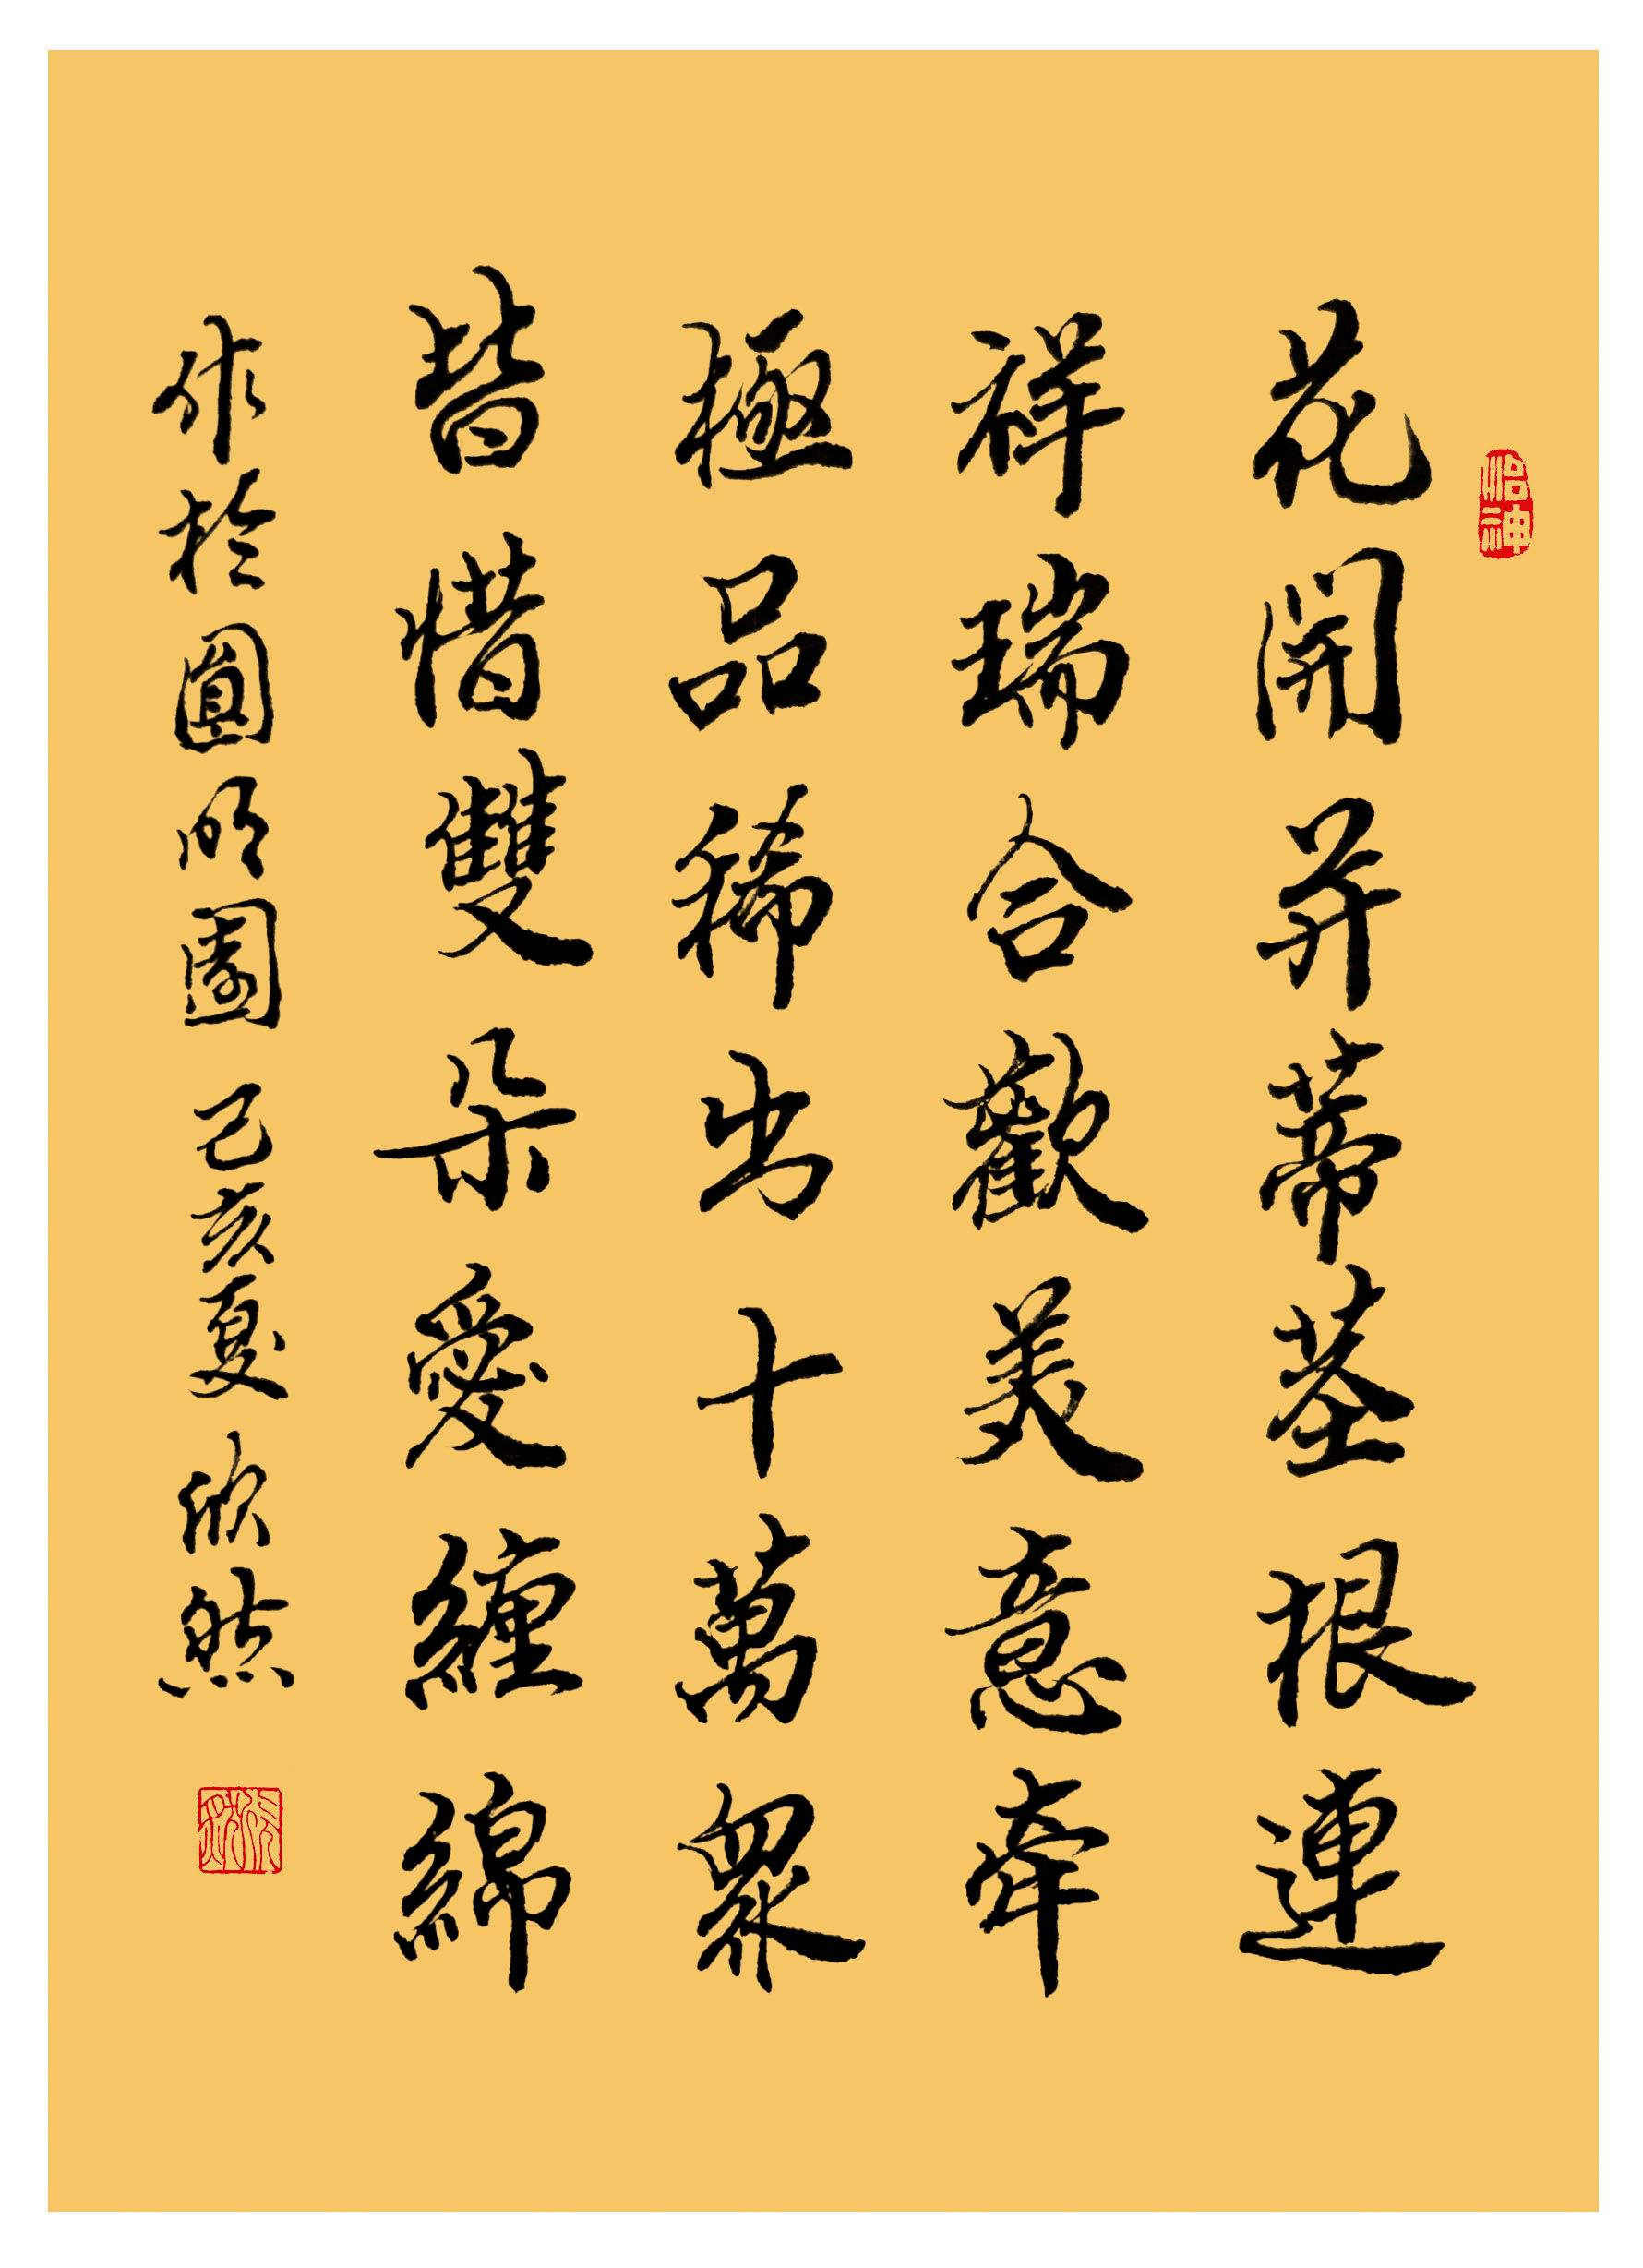 怡神
花開并蒂莖根連
祥瑞合歡美意牽
極品稀出十萬眾
皆惜雙朵愛纏綿
作於圓明園 己亥夏 欣然